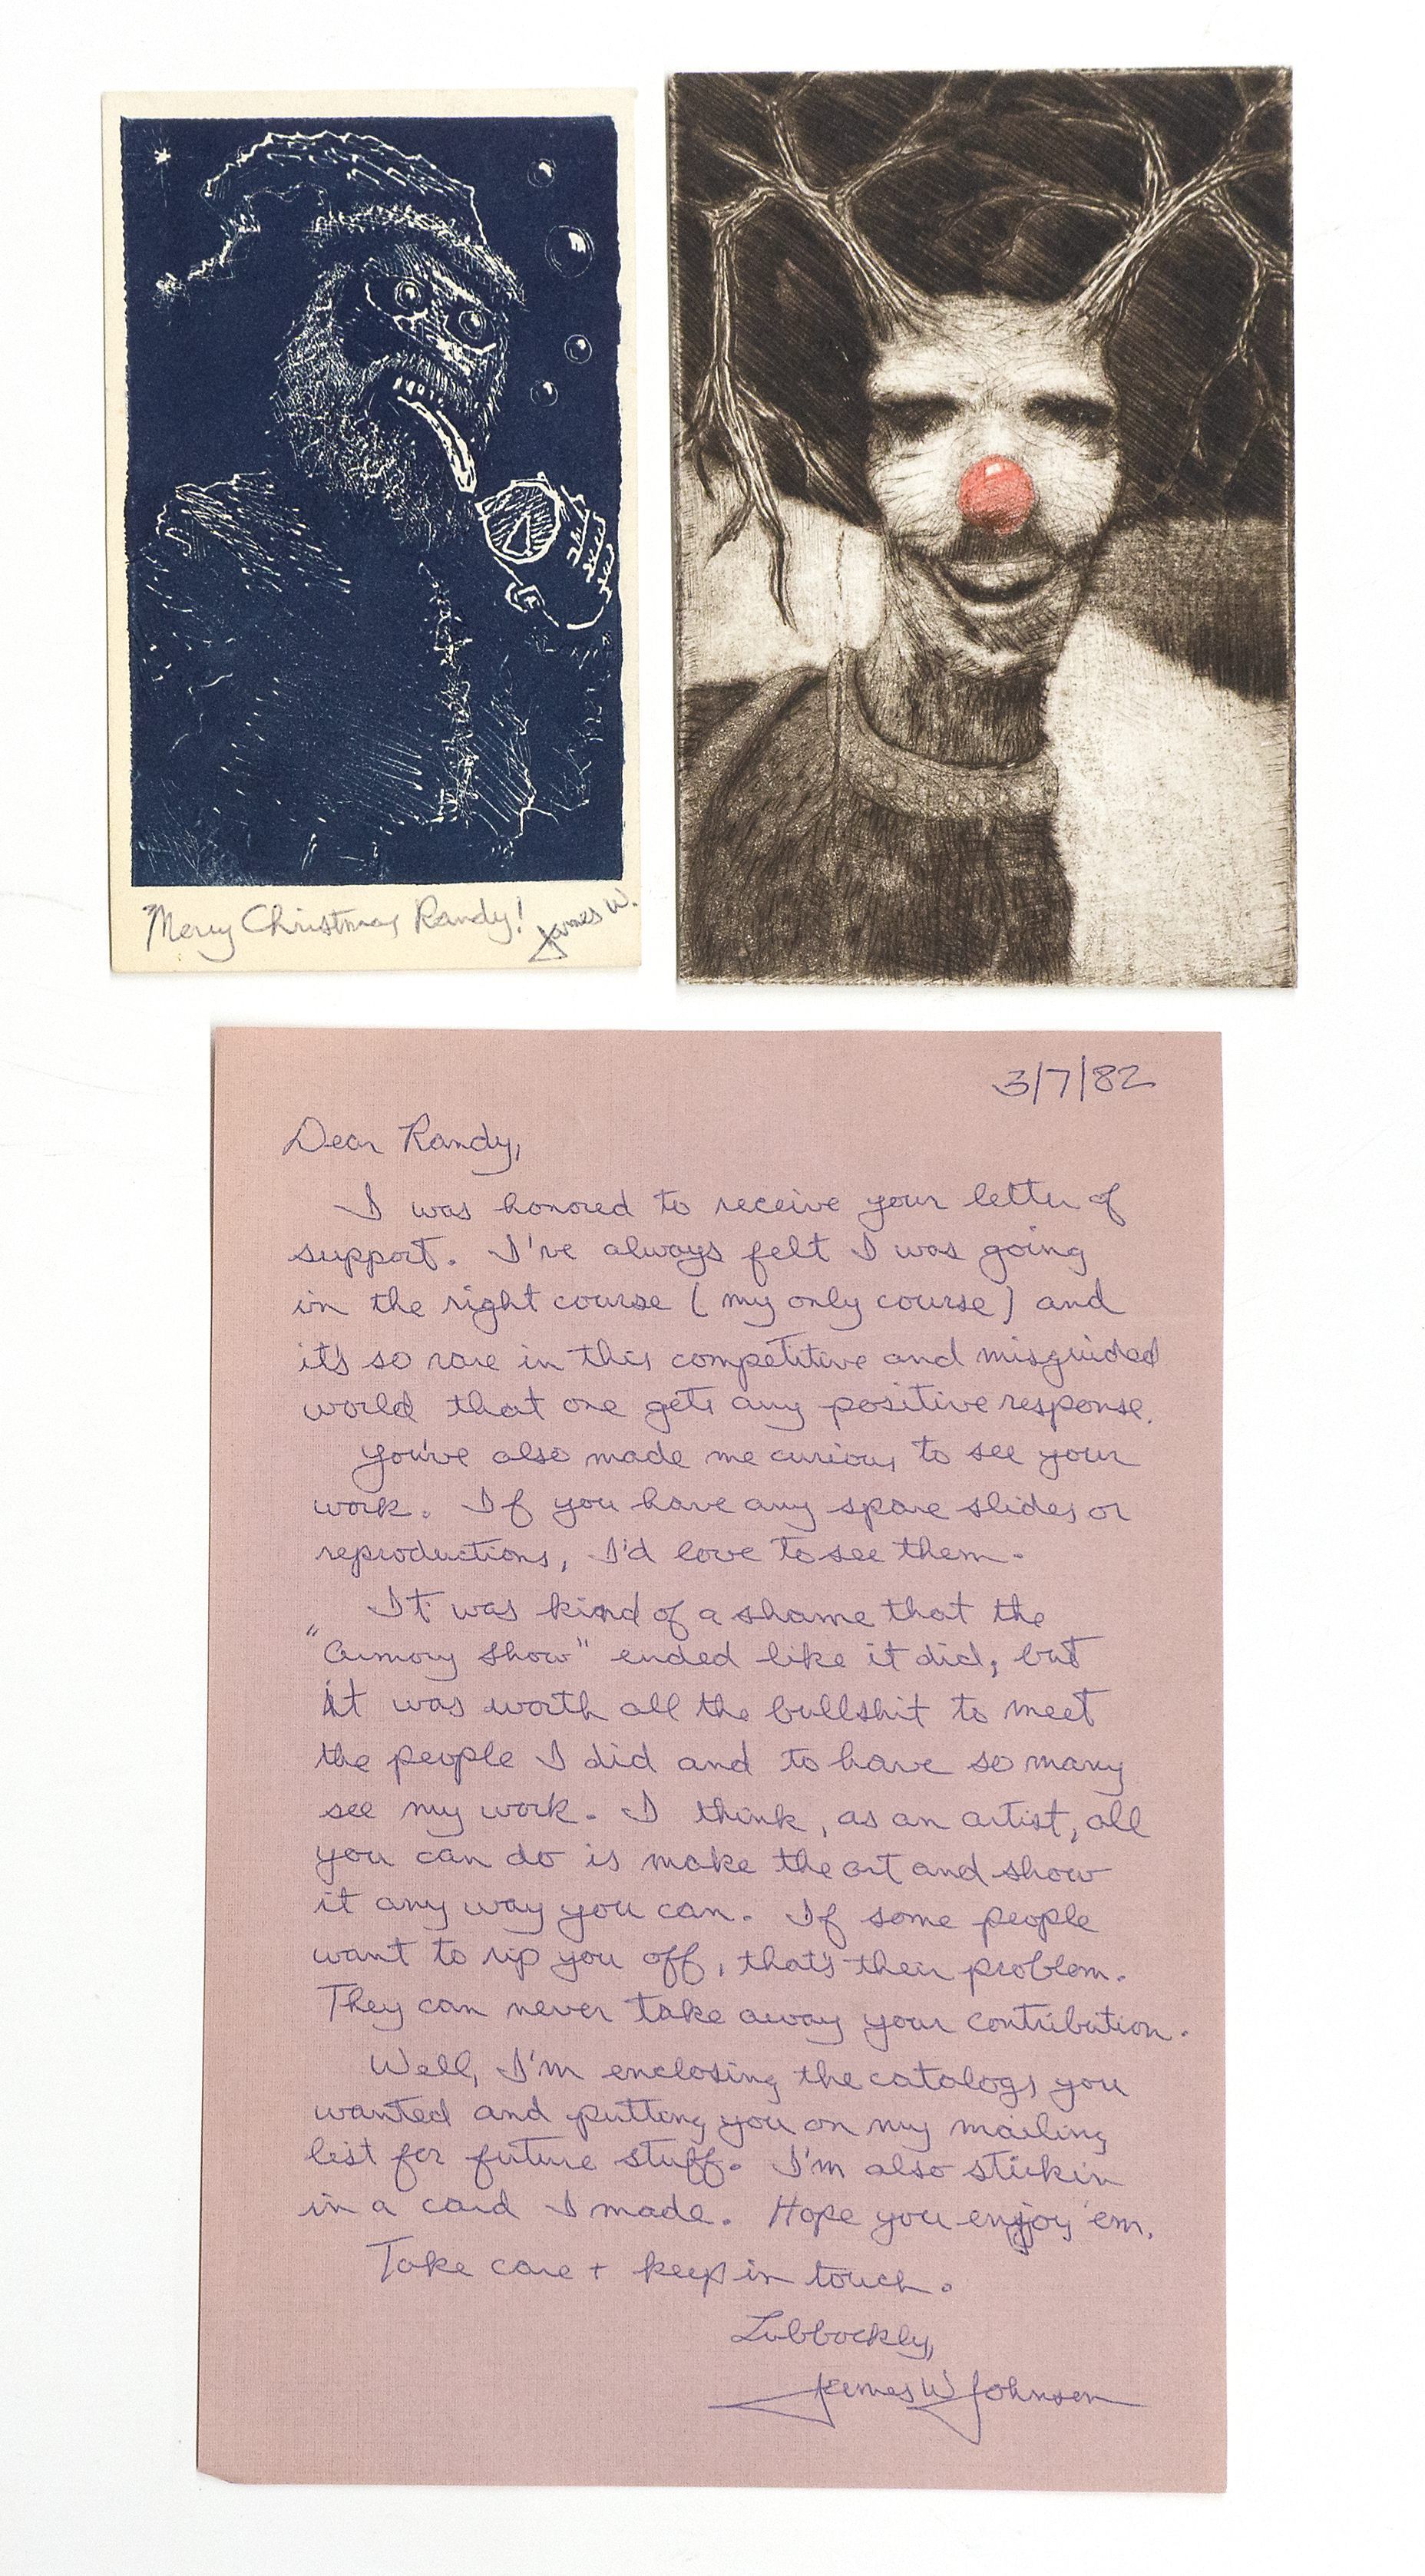 Merry Christmas Randy! James W.
3/7/82
Dear Randy,
I was honored to receive your letter of
support. I've always felt I was going
in the right course (my only course) and
it's so rare in this competitive and misguided
world that one gets any positive response.
You've also made me curious to see your
work. If you have any spare slides or
reproductions, I'd love to see them.
It was kind of a shame that the
"Armory Show" ended like it did, but
it was worth all the bullshit to meet
the people I did and to have so many
see my work. I think, as an artist, all
you can do is make the art and show
it any way you can. If some people
want to rip you off, that's their problem.
They can never take away your contribution.
Well, I'm enclosing the catalogs you
wanted and putting you on my mailing
list for future stuff. I'm also stickin
in a card I made. Hope you enjoy 'em.
Take care + keep in touch.
Lubbockly,
James W Johnson